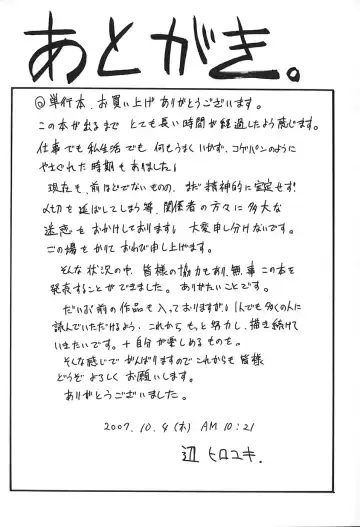 あとがき。
◎単行本、お買い上げありがとうございます。
この本が出るまで とても長い時間が経過したよう感じます。
仕事でも私生活でも何もうまくいかず、コゲパンのように
やさぐれた時期もありました！
現在も、前ほどでないものの、まだ精神的に安定せず！
〆切を延ばしてしまう等、関係者の方々に多大な
迷惑をおかけしております！大変申し分けないです。
この場をかりておわび申し上げます。
そんな状況の中、皆様の協力もあり、無事この本を
発表することができました。ありがたいことです。
だいぶ前の作品も入っておりますが！1人でも多くの人に
読んでいただけるよう、これからもっと努力し、描き続けて
いきたいです。＋自分が楽しめるものを。
そんな感じでがんばりますのでこれからも皆様
どうぞよろしくお願いします。
ありがとうございました。
2007. 10. 4 (木) AM 10:21
辺 ヒロユキ.